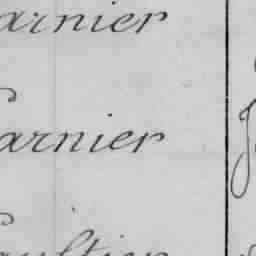 arnier
arnier
aultier